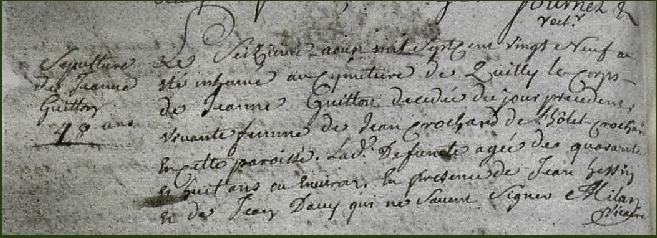 fournet &
rect.r
Sepulture
de Jeanne
Guitton
48 ans
Le Seizieme aoust mil sept cent vingt e neuf a
eté inhumé au cymetiere de Quilly le corps
de Jeanne Guitton decedée du jour precedent,
vivante femme de Jean Crochard de l'hôtel crochar
en cette paroisse. Lad.e Defunte agee de quarante
et huit ans ou environ, en presence de Jean
et de Jean Davy qui ne savent Signer
vicaire